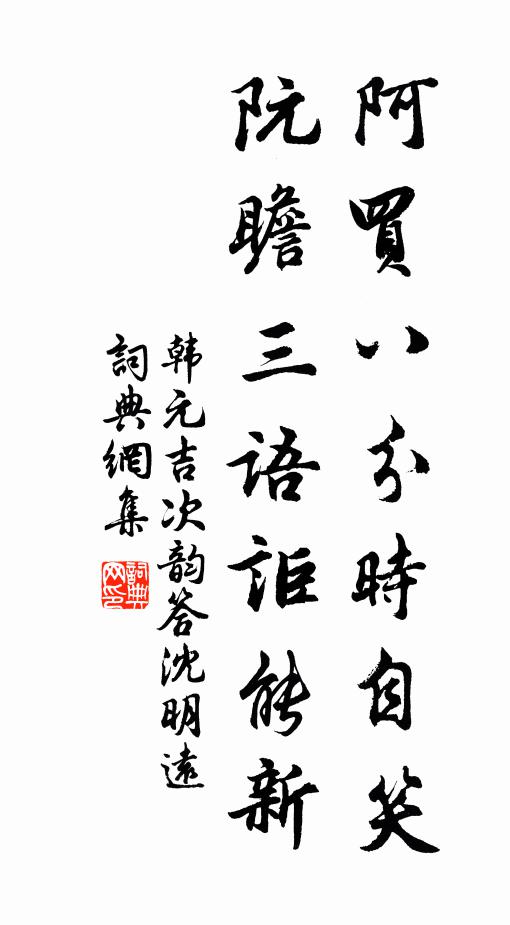 阿買八分時自笑
阮瞻三語詎能新
韩元吉次韵答沈明遠
詞典網集
詞典网印